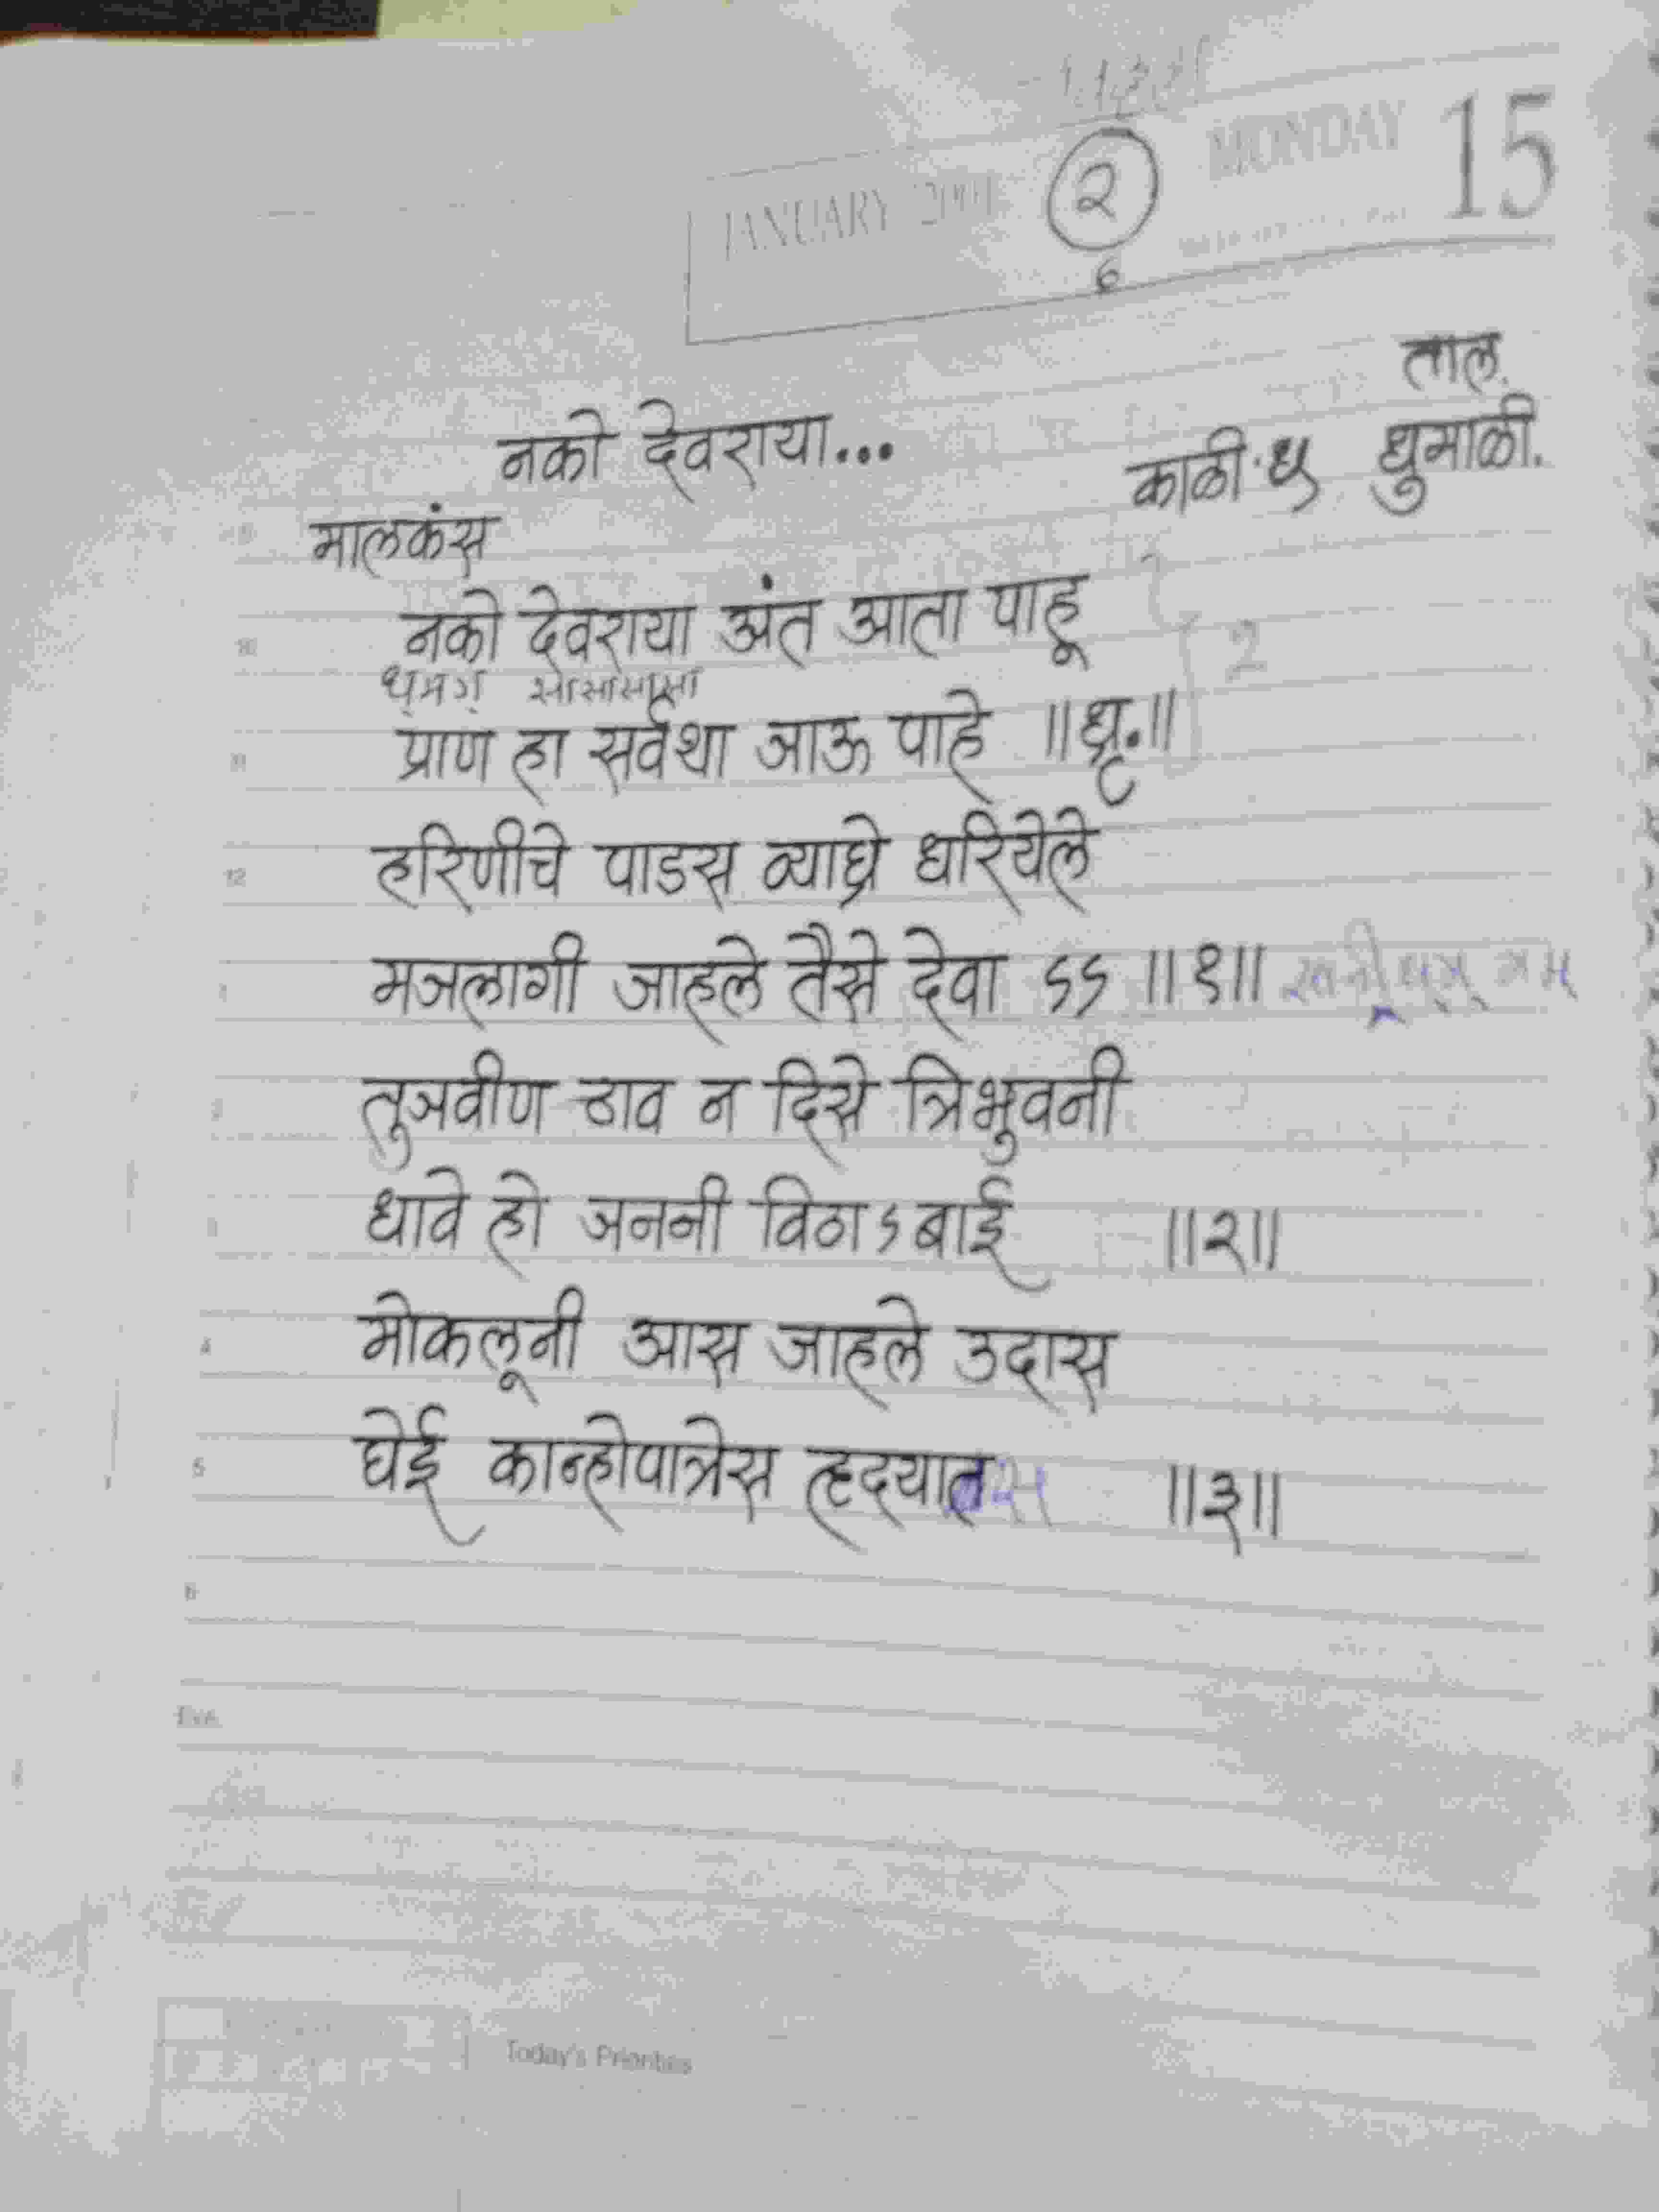 JANUARY 2001 २ MONDAY 15
6
ताल.
नको देवराया... काळी ध धुमाळी.
मालकंस
नको देवराया अंत आता पाहू
10 2
ध़म़ग़ सासासासा
प्राण हा सर्वथा जाऊ पाहे ॥धृ.॥
11
हरिणीचे पाडस व्याघ्रे धरियेले
12
मजलागी जाहले तैसे देवा ऽऽ ॥१॥
1
तुजवीण ठाव न दिसे त्रिभुवनी
2
धावे हो जननी विठाऽबाई ॥२॥
3
मोकलूनी आस जाहले उदास
4
घेई कान्होपात्रेस हृदयात ॥३॥
5
6
Eve.
Today's Priorities